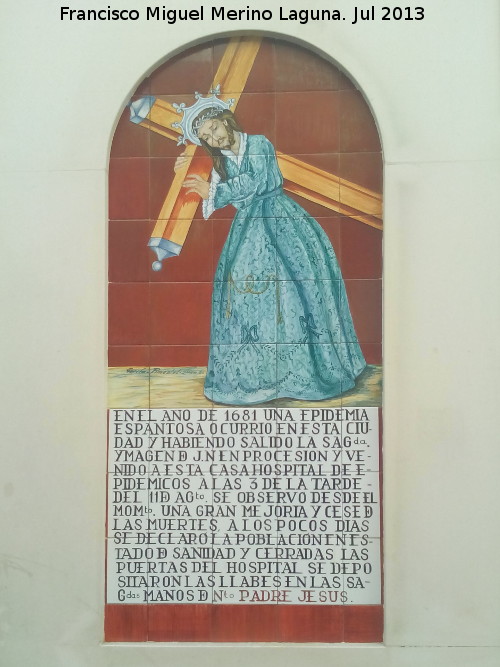 Francisco Miguel Merino Laguna. Jul 2013
EN EL AÑO DE 1681 UNA EPIDEMIA
ESPANTOSA OCURRIO EN ESTA CIU
DAD Y HABIENDO SALIDO LA SAGda.
YMAGEN D J.N EN PROCESION Y VE-
NIDO A ESTA CASA HOSPITAL DE E-
PIDEMICOS A LAS 3 DE LA TARDE-
DEL 11 D AGto. SE OBSERVO DESDE EL
MOMto. UNA GRAN MEJORIA Y CESE D
LAS MUERTES, A LOS POCOS DIAS
SE DECLARO LA POBLACION EN ES
TADO D SANIDAD Y CERRADAS LAS
PUERTAS DEL HOSPITAL SE DEPO
SITARON LAS LLABES EN LAS SA-
Gdas MANOS D Nto PADRE JESUS.